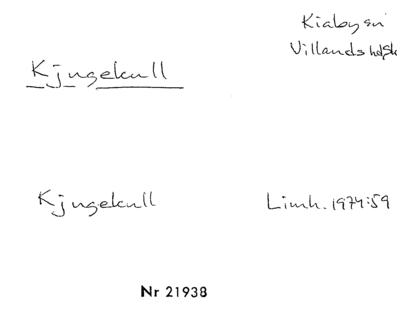 Kiaby sn
Villands hd, Sk
Kjugekull
Kjugekull
Limh. 1974:59
Nr 21938